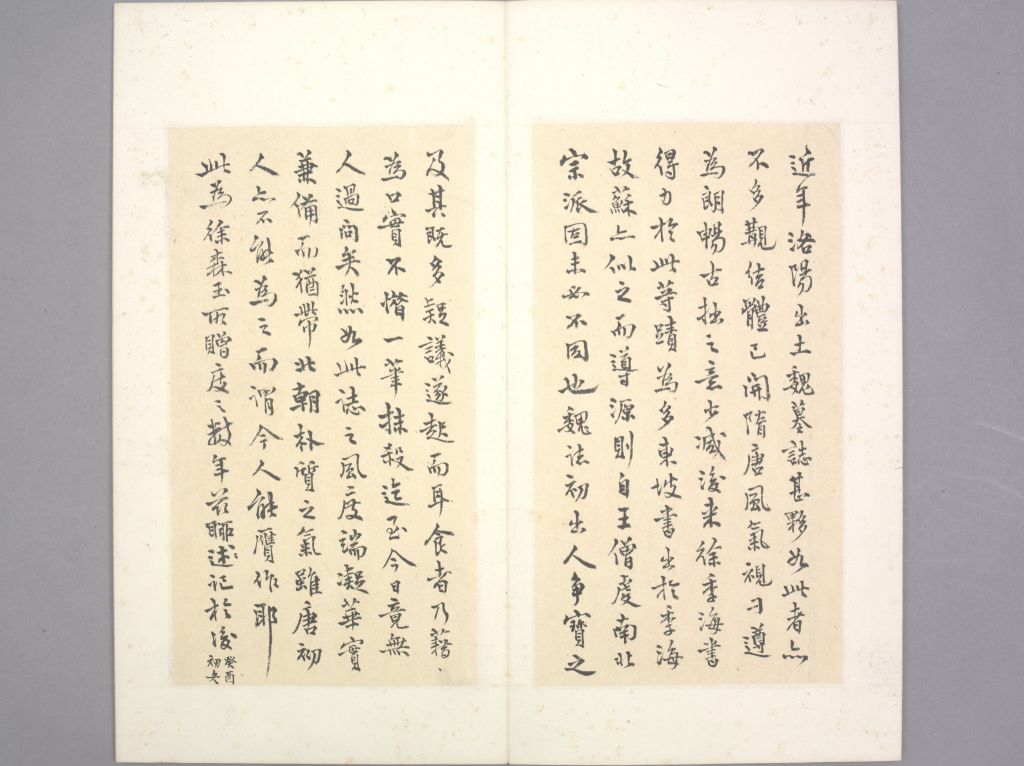 近年洛陽出土魏墓誌甚夥如此者亦
不多覯佶體已開隋唐風氣視刁遵
為朗暢古拙之意少減後来徐季海書
得力於此等蹟為多東坡書出於季海
故蘇亦似之而導源則自王僧虔南北
宗派固未必不同也魏誌初出人争寶之
及其既多疑議遂起而耳食者乃藉、
為口實不惜一筆抹殺迄至今日竟無
人過问矣然如此誌之風度端凝華實
兼備而猶帶北朝朴質之氣雖唐初
人亦不能為之而謂今人能贋作耶
此為徐森玉所贈度之數年茲暇述記於後
癸酉
初冬